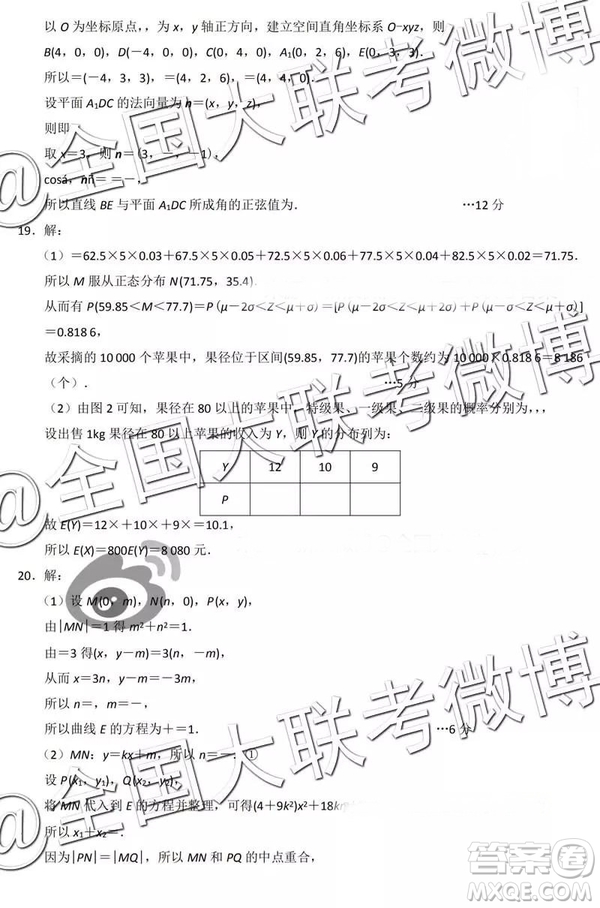 以 O 为坐标原点，，为 x，y 轴正方向，建立空间直角坐标系 O-xyz，则
B(4，0，0)，D(−4，0，0)，C(0，4，0)，A₁(0，2，6)，E(0，3，3)．
所以＝(−4，3，3)，＝(4，2，6)，＝(4，4，0)．
设平面 A₁DC 的法向量为 n＝(x，y，z)，
则即
取 x＝3，则 n＝(3，−，−1)，
cosá，ñ＝＝−，
所以直线 BE 与平面 A₁DC 所成角的正弦值为． …12 分
19．解：
（1）＝62.5×5×0.03＋67.5×5×0.05＋72.5×5×0.06＋77.5×5×0.04＋82.5×5×0.02＝71.75．
所以 M 服从正态分布 N(71.75，35.4)．
从而有 P(59.85＜M＜77.7)＝P（μ−2σ＜Z＜μ＋σ)＝[P（μ−2σ＜Z＜μ＋2σ)＋P（μ−σ＜Z＜μ＋σ)]
＝0.818 6，
故采摘的 10 000 个苹果中，果径位于区间(59.85，77.7)的苹果个数约为 10 000×0.818 6＝8 186
（个）． …5 分
（2）由图 2 可知，果径在 80 以上的苹果中，特级果、一级果、二级果的概率分别为，，，
设出售 1kg 果径在 80 以上苹果的收入为 Y，则 Y 的分布列为：
Y 12 10 9
P
故 E(Y)＝12×＋10×＋9×＝10.1，
所以 E(X)＝800E(Y)＝8 080 元．
20．解：
（1）设 M(0，m)，N(n，0)，P(x，y)，
由|MN|＝1 得 m²＋n²＝1．
由＝3 得(x，y−m)＝3(n，−m)，
从而 x＝3n，y−m＝−3m，
所以 n＝，m＝−，
所以曲线 E 的方程为＋＝1． …6 分
（2）MN：y＝kx＋m，所以 n＝−．①
设 P(x₁，y₁)，Q(x₂，y₂)，
将 MN 代入到 E 的方程并整理，可得(4＋9k²)x²＋18k
所以 x₁＋x₂＝．
因为|PN|＝|MQ|，所以 MN 和 PQ 的中点重合，
@全国大联考微博
@全国大联考微博
@全国大联考微博
答案圈
MXQE.COM